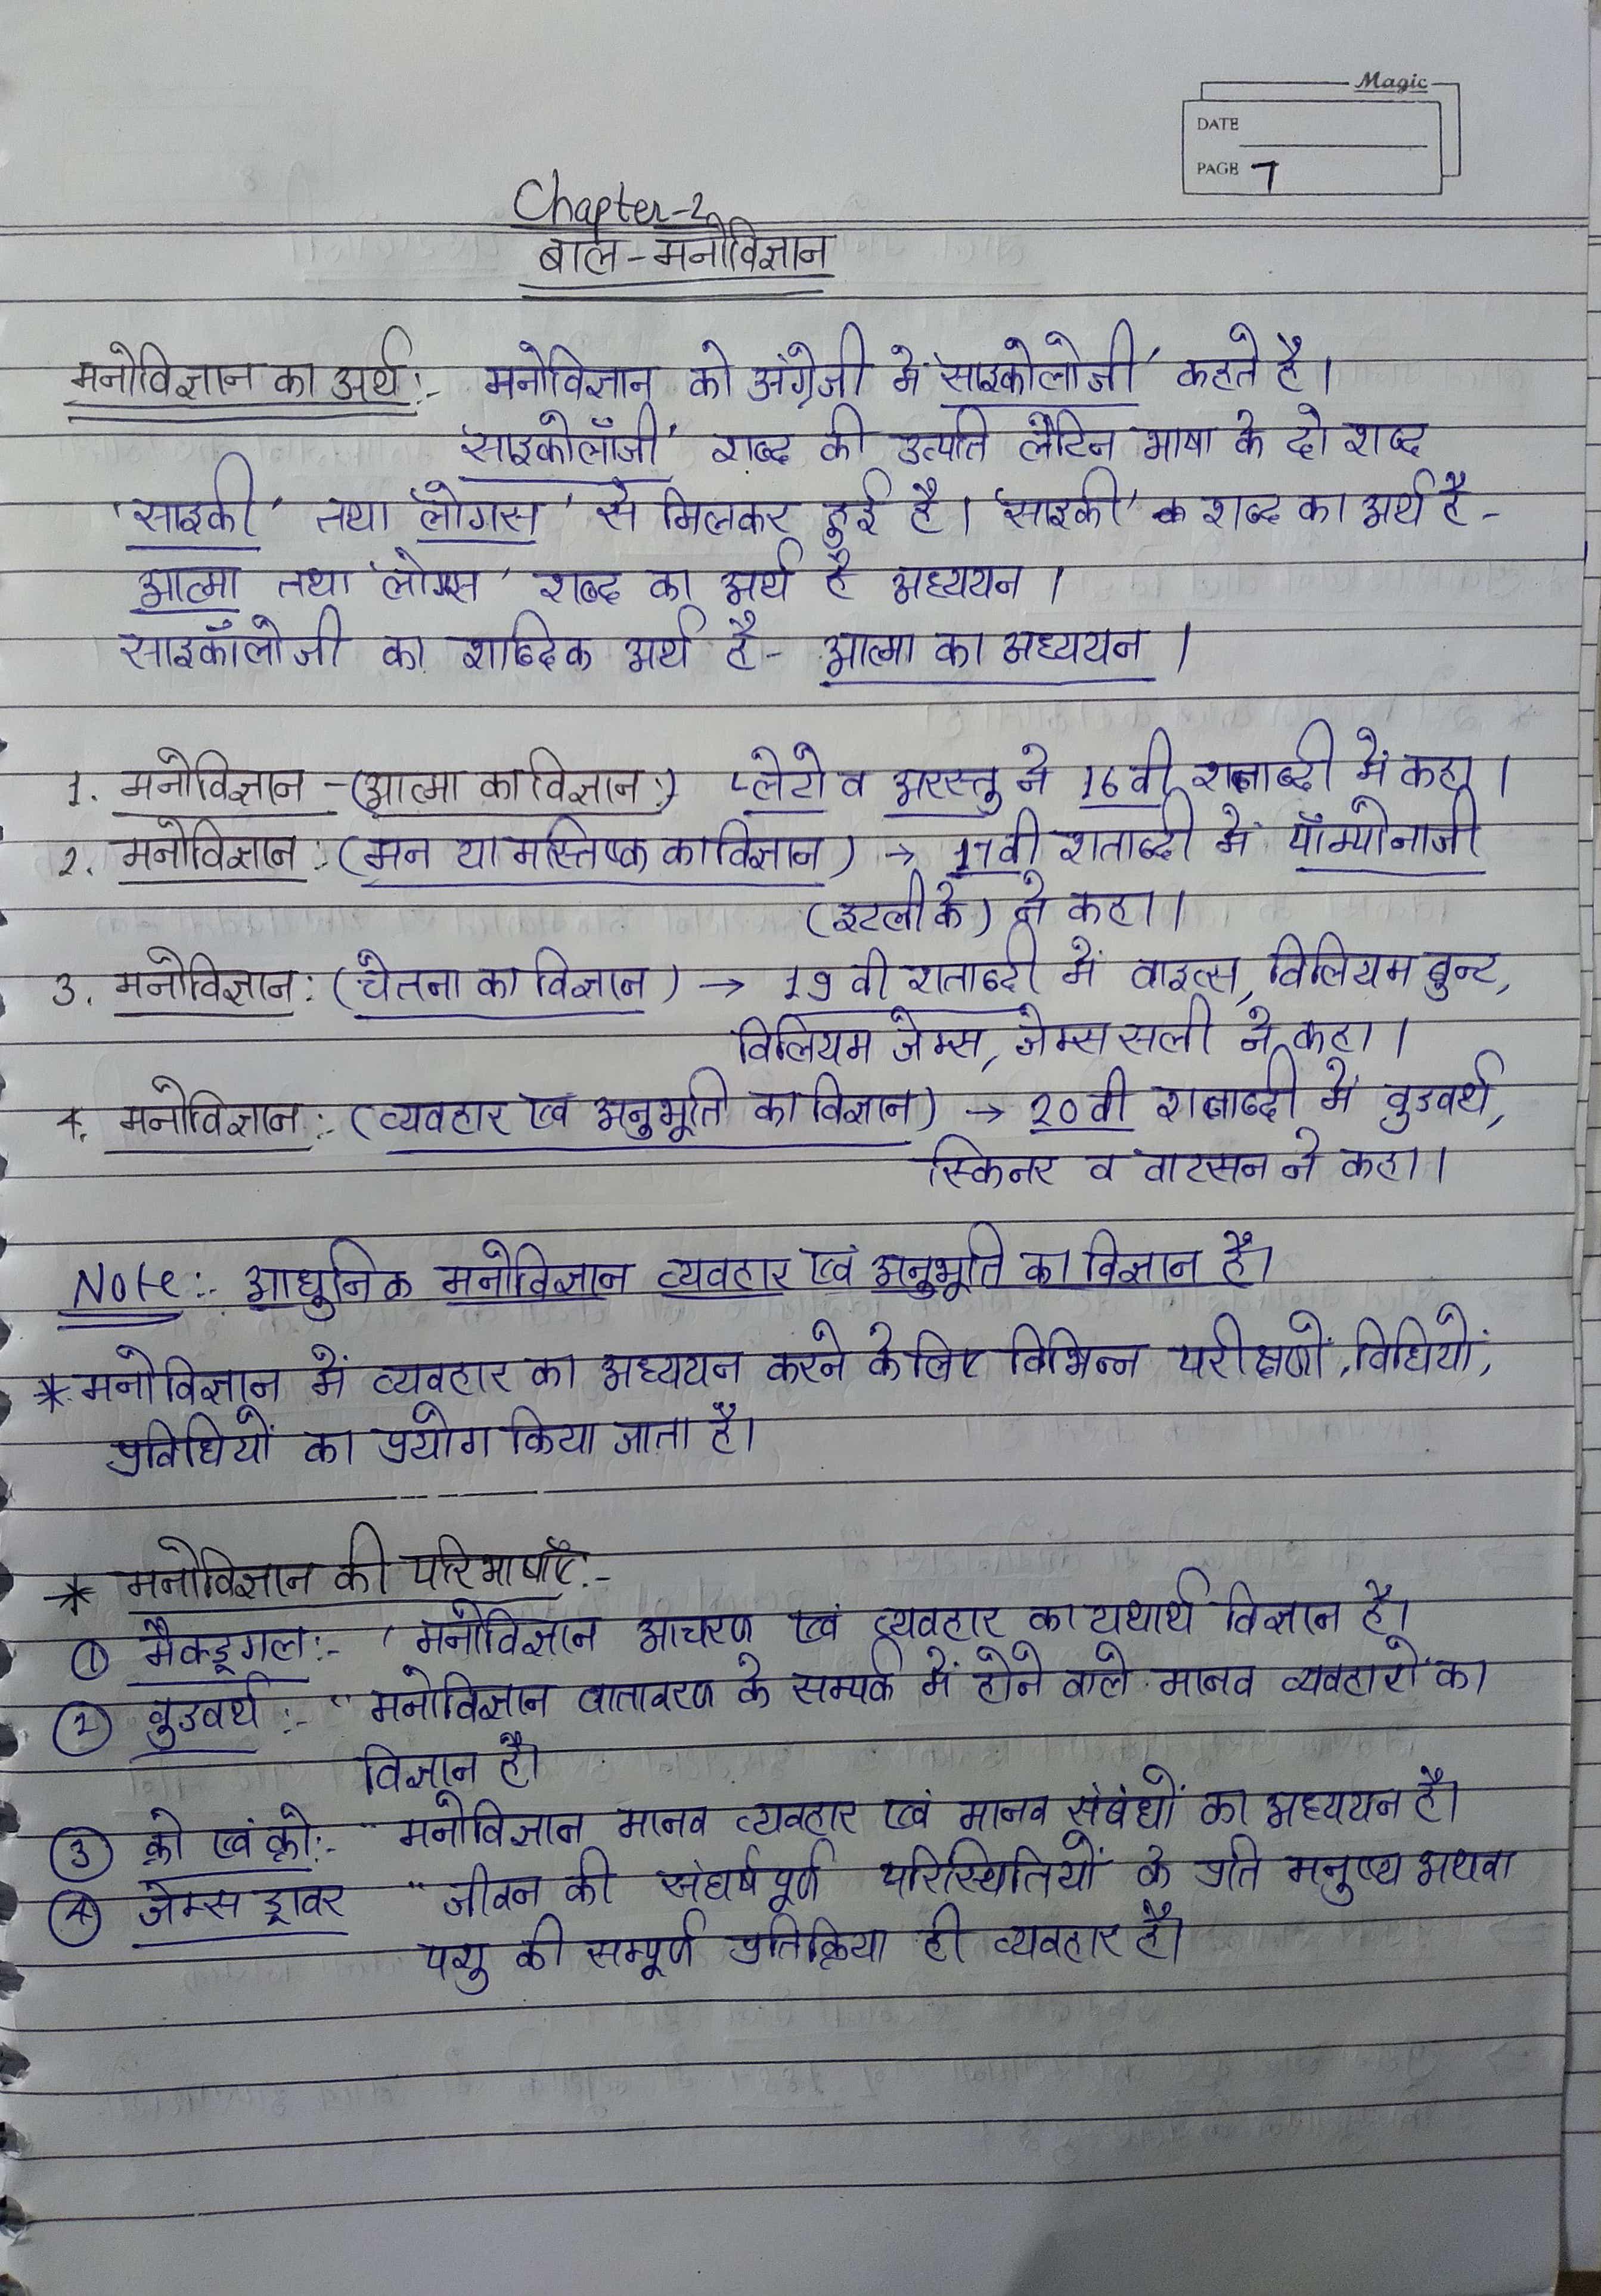 Magic
DATE
PAGE 7
Chapter-2
बाल-मनोविज्ञान
मनोविज्ञान का अर्थ:- मनोविज्ञान को अंग्रेजी में 'साइकोलोजी' कहते है।
'साइकोलॉजी' शब्द की उत्पति लैटिन भाषा के दो शब्द
'साइकी' तथा 'लोगस' से मिलकर हुई है। 'साइकी' शब्द का अर्थ है-
आत्मा तथा 'लोगस' शब्द का अर्थ है अध्ययन।
साइकॉलोजी का शाब्दिक अर्थ है- आत्मा का अध्ययन।
1. मनोविज्ञान -(आत्मा का विज्ञान:) प्लेटो व अरस्तु ने 16वी शताब्दी में कहा।
2. मनोविज्ञान:(मन या मस्तिष्क का विज्ञान) → 17वी शताब्दी में पॉम्पोनाजी
(इटली के) ने कहा।
3. मनोविज्ञान:(चेतना का विज्ञान) → 19वी शताब्दी में वाइल्स, विलियम वुन्ट,
विलियम जेम्स, जेम्स सली ने कहा।
4. मनोविज्ञान:-(व्यवहार एवं अनुभूति का विज्ञान) → 20वी शताब्दी में वुडवर्थ,
स्किनर व वाटसन ने कहा।
Note:- आधुनिक मनोविज्ञान व्यवहार एवं अनुभूति का विज्ञान है।
* मनोविज्ञान में व्यवहार का अध्ययन करने के लिए विभिन्न परीक्षणों, विधियों,
प्रविधियों का प्रयोग किया जाता है।
* मनोविज्ञान की परिभाषाएँ:-
① मैकडूगल:- 'मनोविज्ञान आचरण एवं व्यवहार का यथार्थ विज्ञान है।
② वुडवर्थ:- "मनोविज्ञान वातावरण के सम्पर्क में होने वाले मानव व्यवहारों का
विज्ञान है।
③ क्रो एवं क्रो:- "मनोविज्ञान मानव व्यवहार एवं मानव संबंधों का अध्ययन है।
④ जेम्स ड्रावर "जीवन की संघर्षपूर्ण परिस्थितियों के प्रति मनुष्य अथवा
पशु की सम्पूर्ण प्रतिक्रिया ही व्यवहार है।